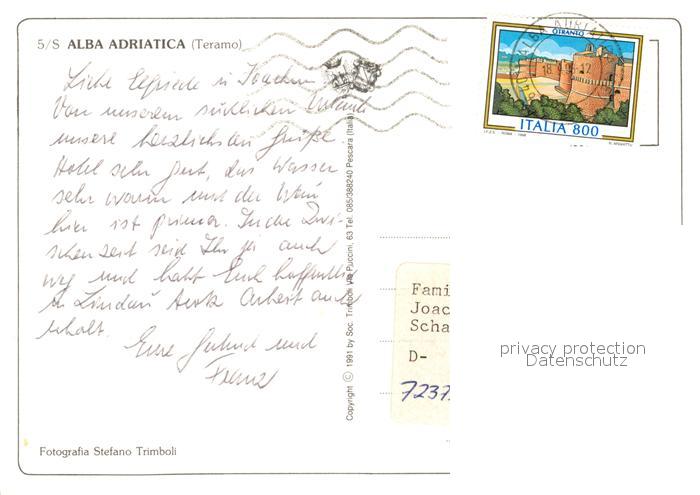 5/S ALBA ADRIATICA (Teramo)
Liebe Elfriede u Joachim
Von unserem südlichen Urlaub
unsere herzlichsten Grüße
Hotel sehr gut, das Wasser
sehr warm und der Wein
hier ist prima. In der Zwi-
schenzeit seid Ihr ja auch
weg und habt Euch hoffentlich
in Lindau trotz Arbeit auch
erholt.
Eure Gertrud und
Franz
Fotografia Stefano Trimboli
Copyright © 1991 by Soc. Trimboli Via Puccini, 63 Tel. 085/388240 Pescara (Italia)
OTRANTO
ITALIA 800
I.P.Z.S. ROMA
Fami
Joac
Scha
D-
7237
privacy protection
Datenschutz